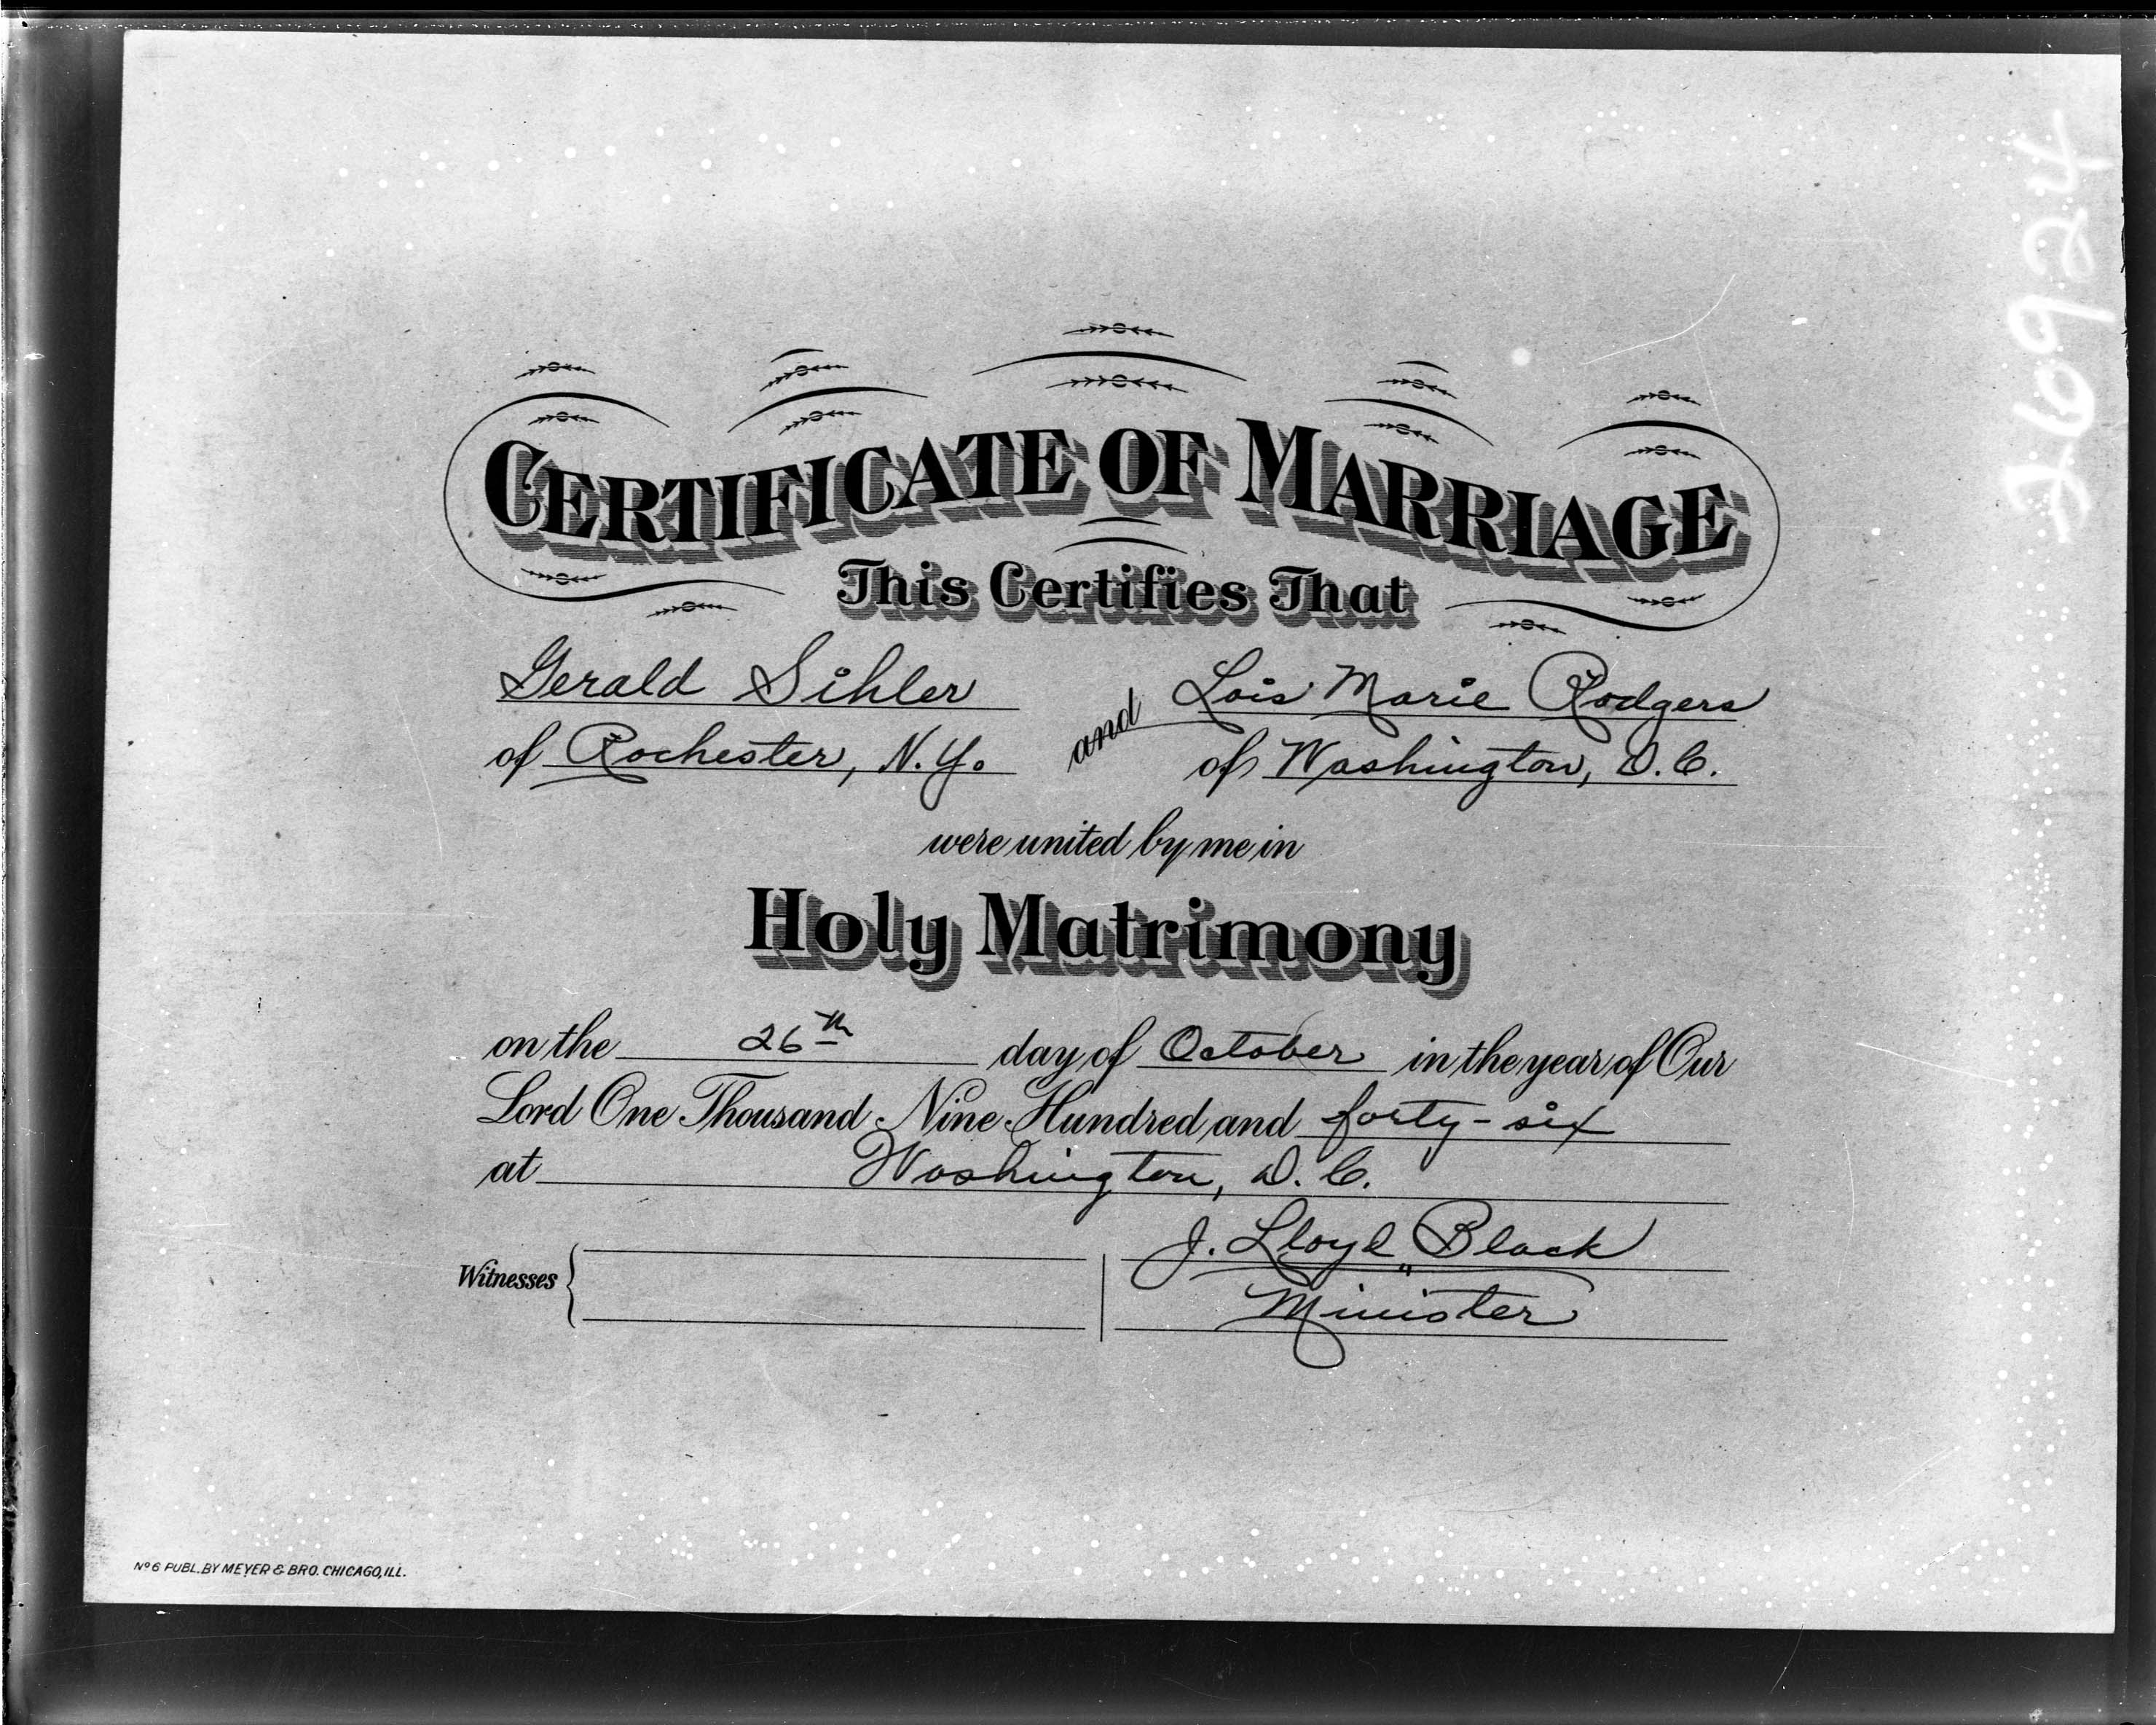 CERTIFICATE OF MARRIAGE
This Certifies That
Gerald Sihler and Lois Marie Rodgers
of Rochester, N.Y. of Washington, D.C.
were united by me in
Holy Matrimony
on the 26th day of October in the year of Our
Lord One Thousand Nine Hundred and forty-six
at Washington, D.C.
Witnesses J. Lloyd Black
Minister
Nº 6 PUBL. BY MEYER & BRO. CHICAGO, ILL.
26924